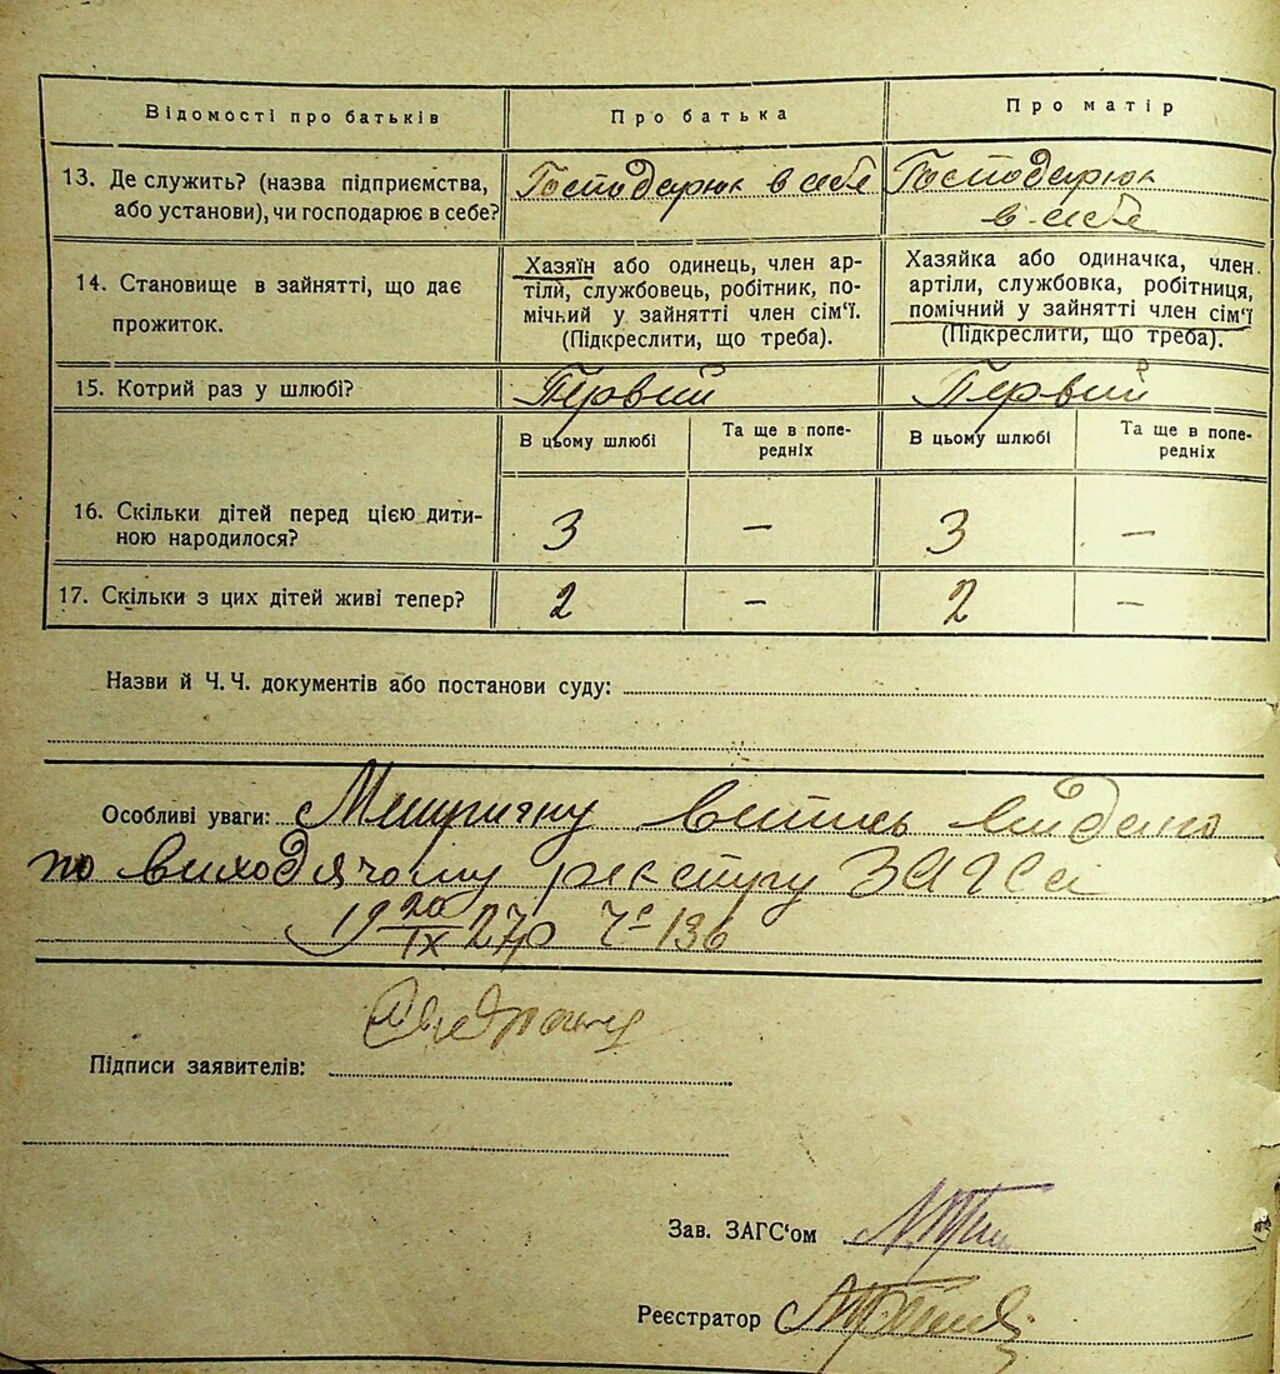 Відомості про батьків
Про батька
Про матір
13. Де служить? (назва підприємства,
або установи), чи господарює в себе?
Господарює в себе
Господарює
в себе
14. Становище в зайнятті, що дає
прожиток.
Хазяїн або одинець, член ар-
тіли, службовець, робітник, по-
мічний у зайнятті член сім‘ї.
(Підкреслити, що треба).
Хазяйка або одиначка, член
артіли, службовка, робітниця,
помічний у зайнятті член сім‘ї
(Підкреслити, що треба).
15. Котрий раз у шлюбі?
Первий
Первий
В цьому шлюбі
Та ще в попе-
редніх
В цьому шлюбі
Та ще в попе-
редніх
16. Скільки дітей перед цією дити-
ною народилося?
3
—
3
—
17. Скільки з цих дітей живі тепер?
2
—
2
—
Назви й Ч. Ч. документів або постанови суду:
Особливі уваги: випись видано
по виходячому реєстру ЗАГСа
19 20/IX 27р Ч° 136
Підписи заявителів:
Зав. ЗАГС‘ом
Реєстратор